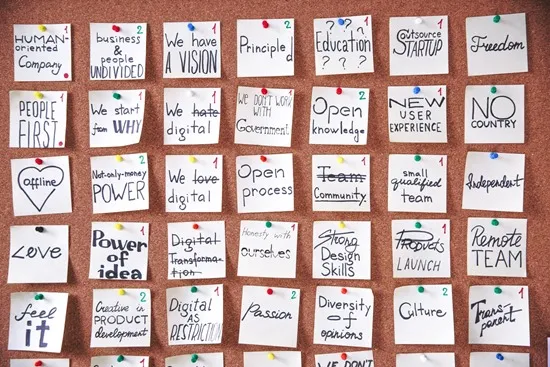 HUMAN-
oriented
Company
2
business
&
people
UNDIVIDED
1
We have
A VISION
2
Principled
? ? ?
Education
? ? ?
1
Outsource
STARTUP
Freedom
1
PEOPLE
FIRST
1
We start
from WHY
1
We hate
digital
1
WE DON'T WORK
with
Government
2
Open
knowledge
1
NEW
USER
EXPERIENCE
NO
COUNTRY
offline
2
Not-only-money
POWER
1
We love
digital
Open
process
1
Team
Community
1
small
qualified
team
Independent
LOVE
1
Power
of
idea
1
Digital
Transforma-
tion
1
Honesty with
ourselves
Strong
Design
Skills
1
Products
LAUNCH
Remote
TEAM
feel
it
2
Creative in
PRODUCT
development
1
Digital
AS
RESTRICTION
2
Passion
1
Diversity
of
opinions
2
Culture
Trans-
parent
1
1
2
WE DON'T